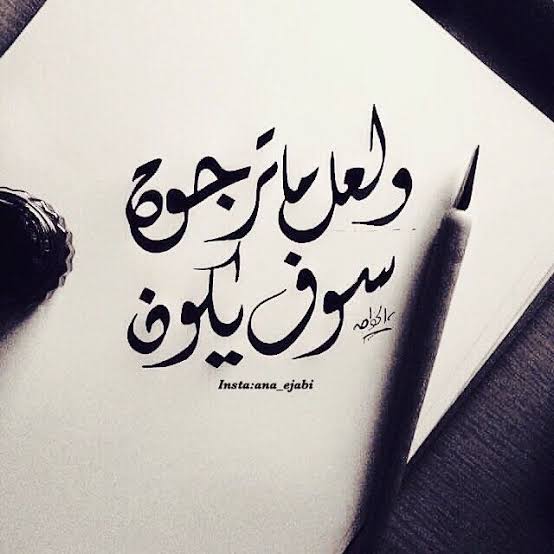 ولعل ما ترجوه
سوف يكون
Insta:ana_ejabi